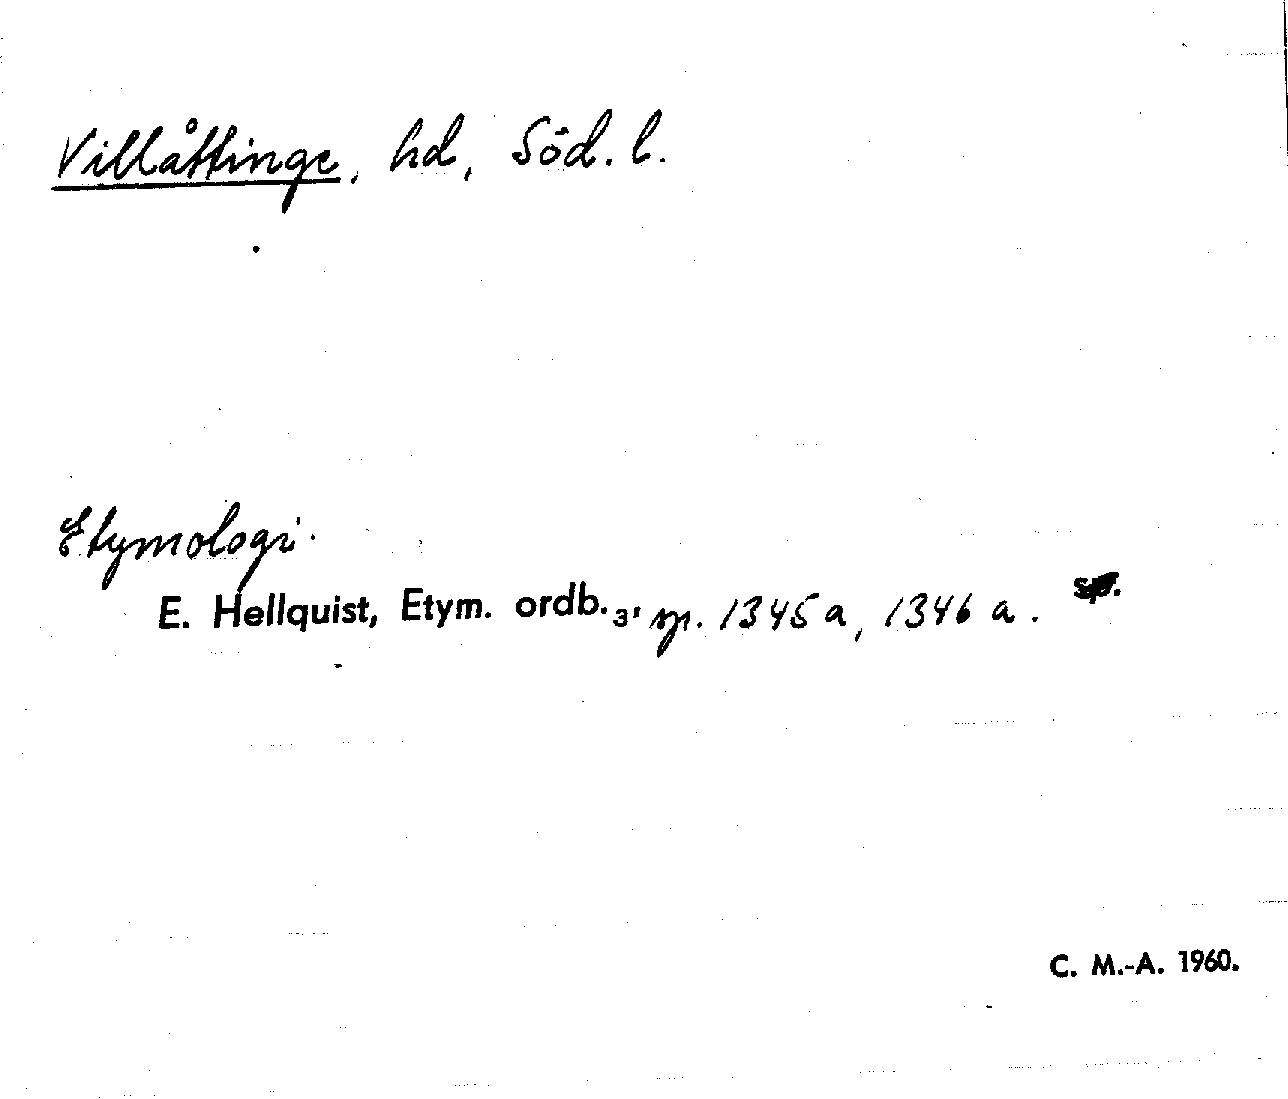 Villåttinge, hd, Söd. l.
Etymologi.
E. Hellquist, Etym. ordb.3, sp. 1345 a, 1346 a.
C. M.-A. 1960.